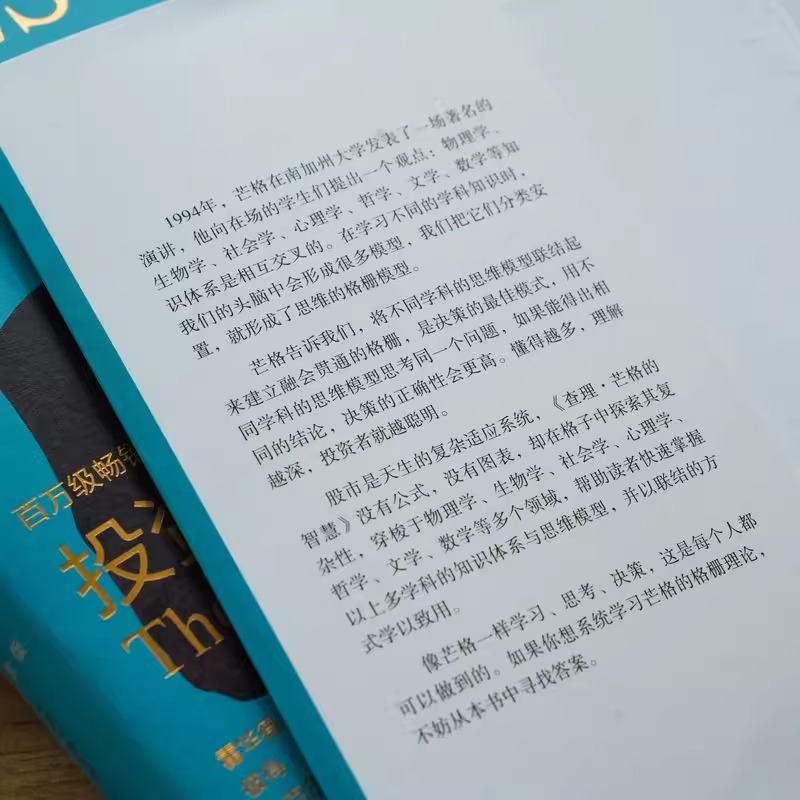 1994年，芒格在南加州大学发表了一场著名的
演讲，他向在场的学生们提出一个观点：物理学、
生物学、社会学、心理学、哲学、文学、数学等知
识体系是相互交叉的。在学习不同的学科知识时，
我们的头脑中会形成很多模型，我们把它们分类安
置，就形成了思维的格栅模型。
芒格告诉我们，将不同学科的思维模型联结起
来建立融会贯通的格栅，是决策的最佳模式，用不
同学科的思维模型思考同一个问题，如果能得出相
同的结论，决策的正确性会更高。懂得越多，理解
越深，投资者就越聪明。
股市是天生的复杂适应系统，《查理·芒格的
智慧》没有公式，没有图表，却在格子中探索其复
杂性，穿梭于物理学、生物学、社会学、心理学、
哲学、文学、数学等多个领域，帮助读者快速掌握
以上多学科的知识体系与思维模型，并以联结的方
式学以致用。
像芒格一样学习、思考、决策，这是每个人都
可以做到的。如果你想系统学习芒格的格栅理论，
不妨从本书中寻找答案。
百万级畅销
投资
Th